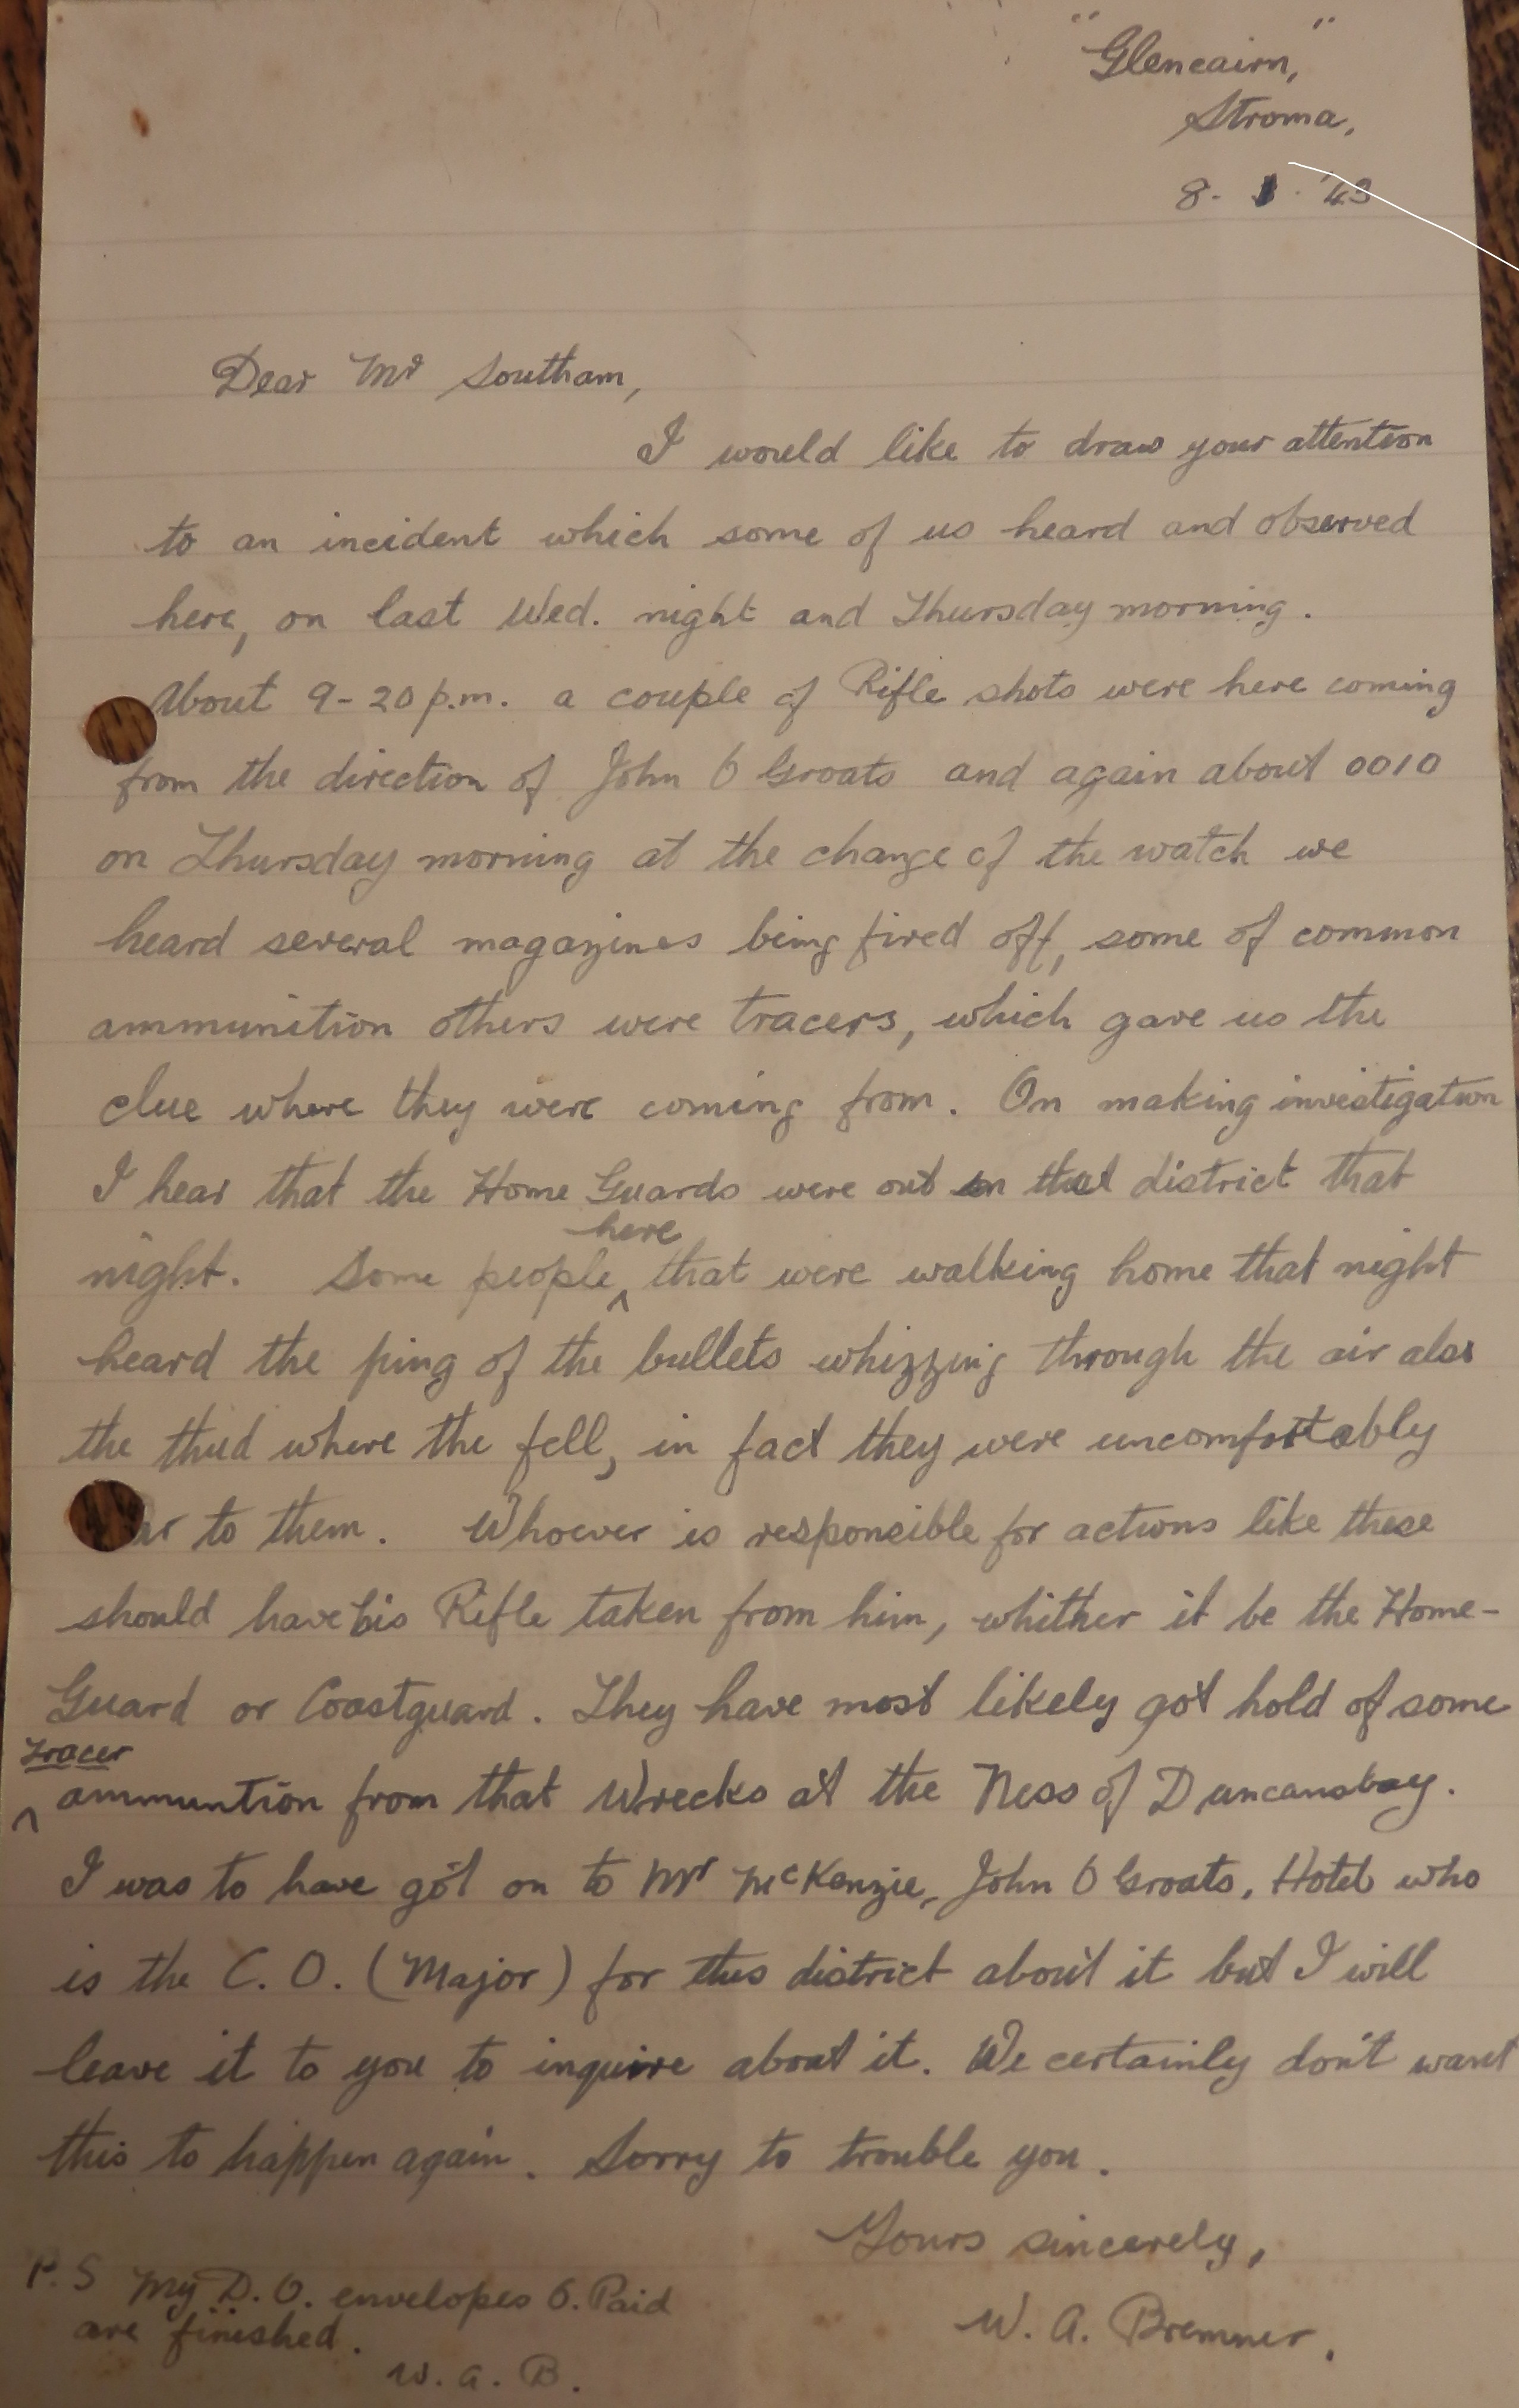 "Glencairn,"
Stroma,
8- 1 · '43
Dear Mr Southam,
I would like to draw your attention
to an incident which some of us heard and observed
here, on last Wed. night and Thursday morning.
About 9-20 p.m. a couple of Rifle shots were here coming
from the direction of John O Groats and again about 0010
on Thursday morning at the change of the watch we
heard several magazines being fired off, some of common
ammunition others were tracers, which gave us the
clue where they were coming from. On making investigation
I hear that the Home Guards were out in that district that
night. Some people here that were walking home that night
heard the ping of the bullets whizzing through the air also
the thud where the fell, in fact they were uncomfortably
ar to them. Whoever is responsible for actions like these
should have his Rifle taken from him, whither it be the Home-
Guard or Coastguard. They have most likely got hold of some
tracer ammuntion from that Wrecks at the Ness of Duncansbay.
I was to have got on to Mr McKenzie, John O Groats, Hotel who
is the C. O. (Major) for this district about it but I will
leave it to you to inquire about it. We certainly don't want
this to happen again. Sorry to trouble you.
Yours sincerely,
W. A. Bremner.
P.S My D. O. envelopes O. Paid
are finished.
W. A. B.